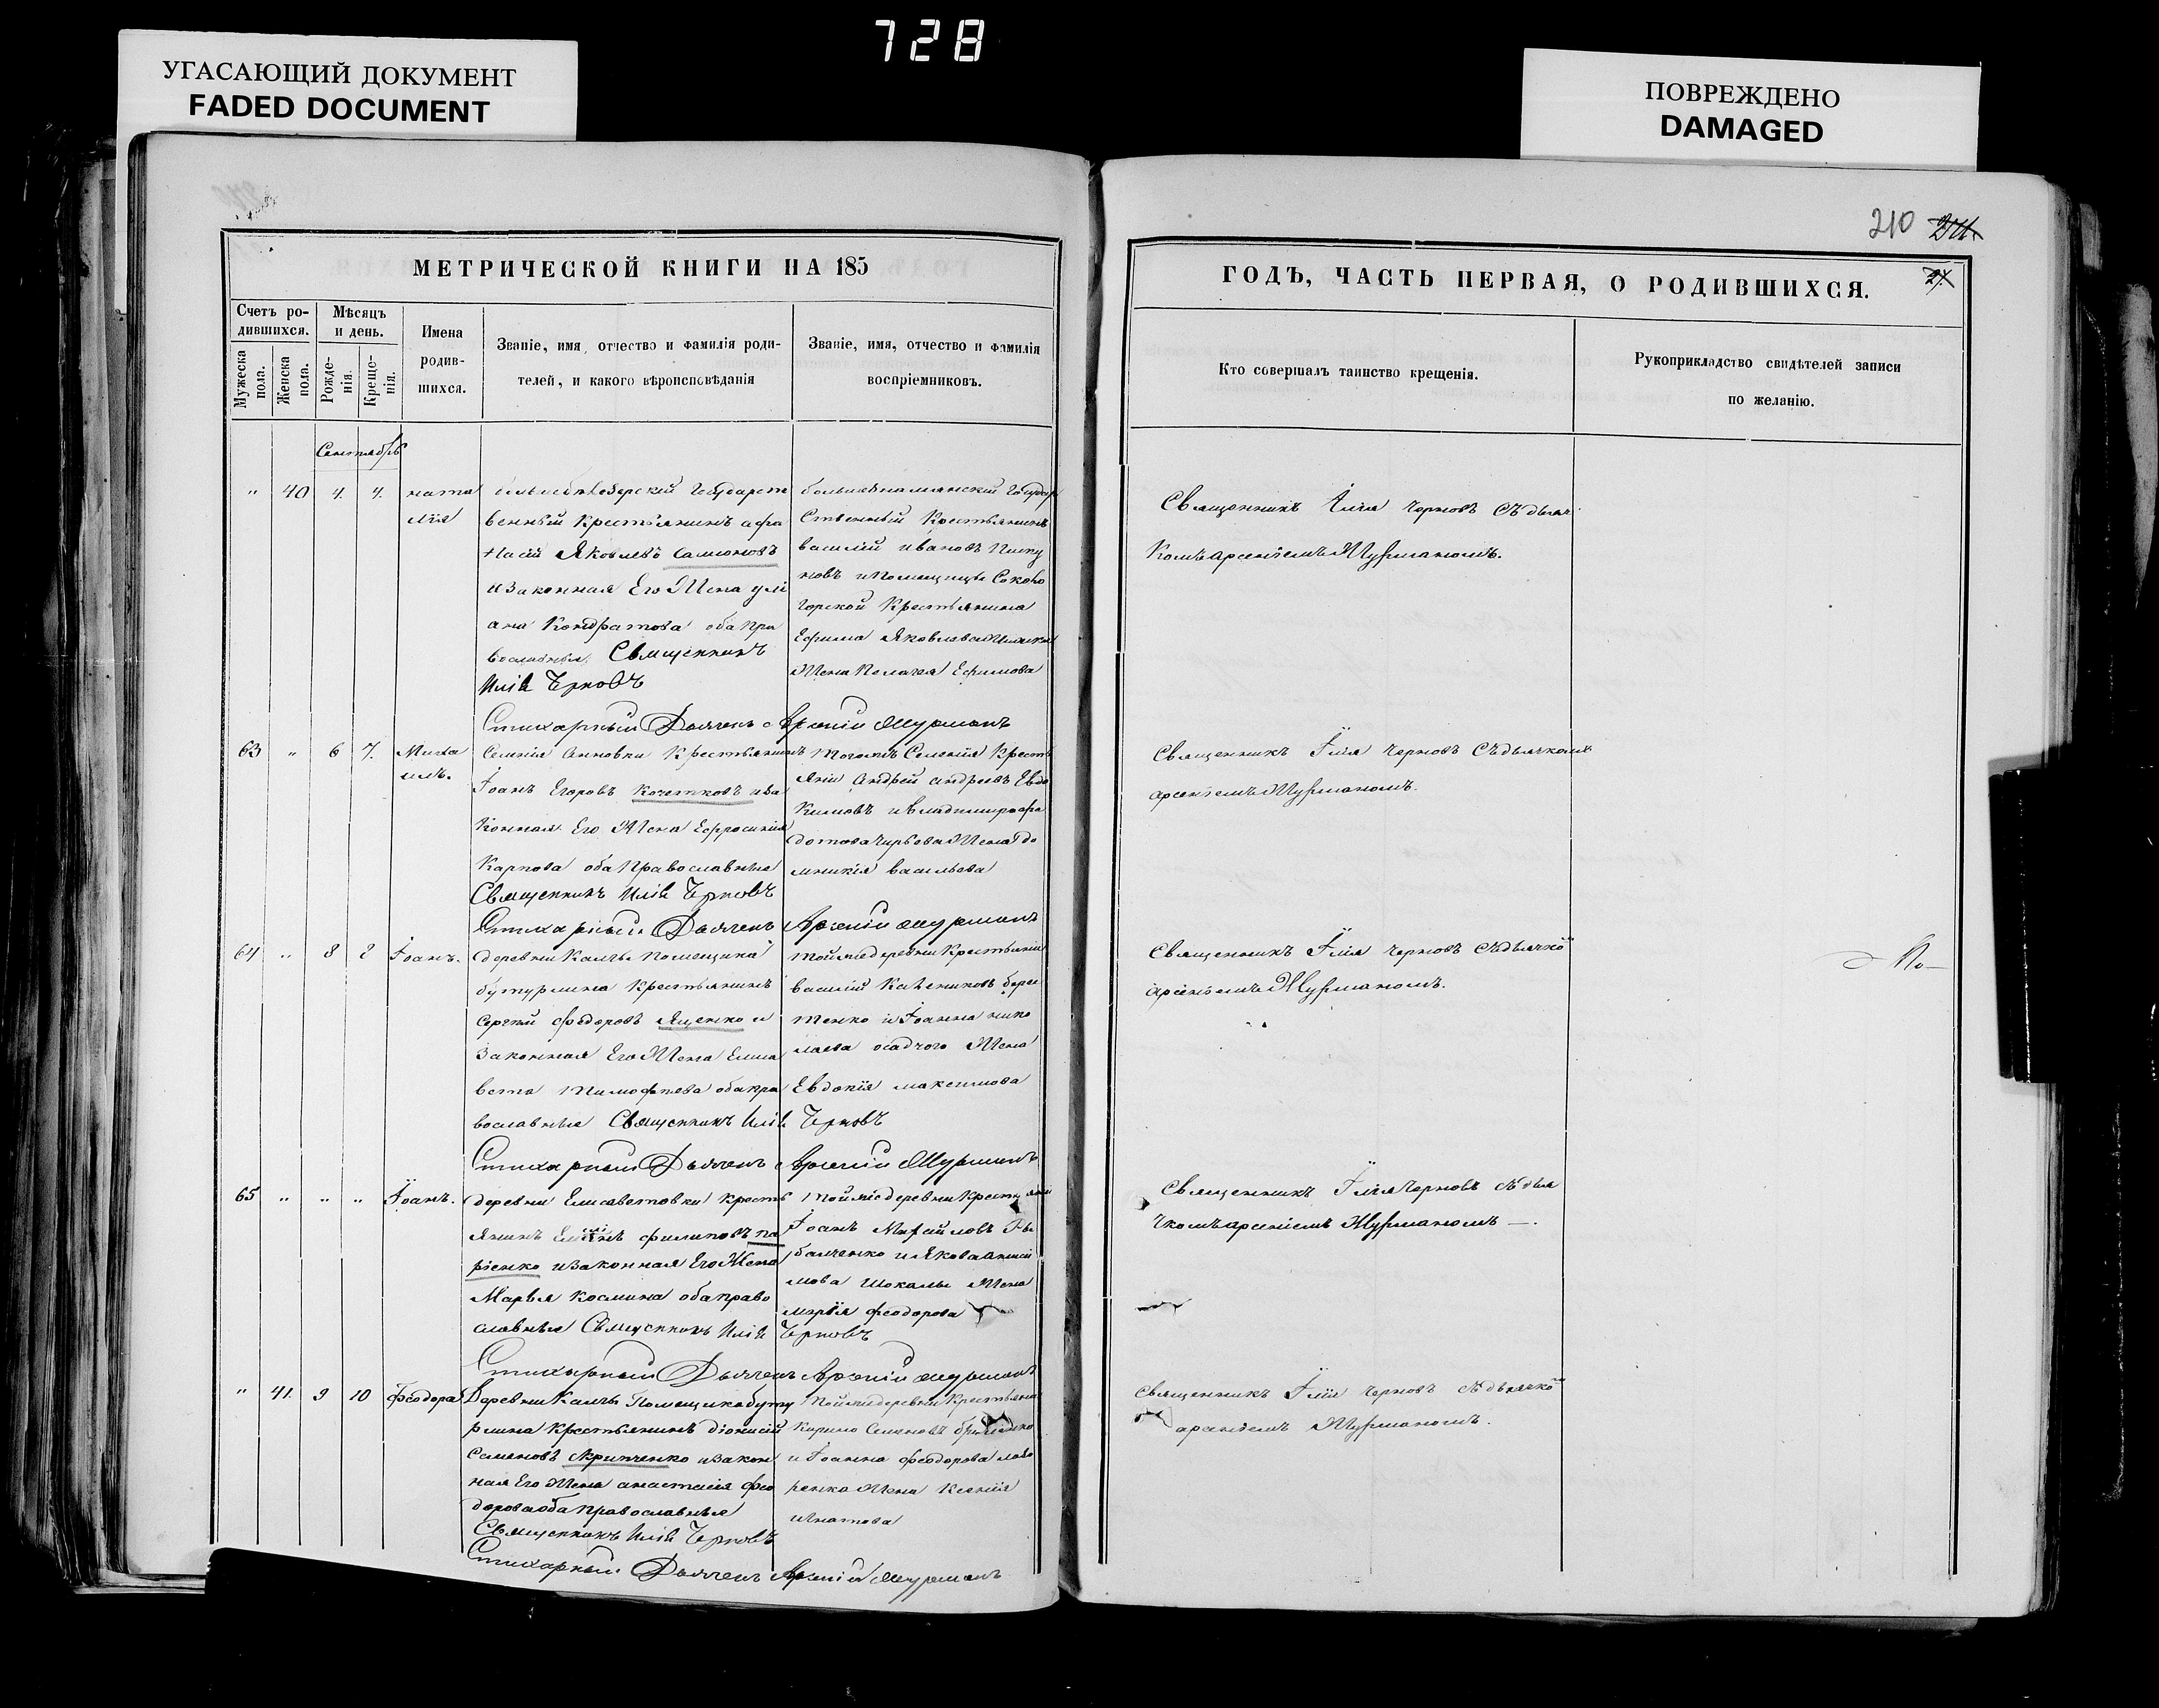 728
УГАСАЮЩИЙ ДОКУМЕНТ
FADED DOCUMENT
ПОВРЕЖДЕНО
DAMAGED
МЕТРИЧЕСКОЙ КНИГИ НА 185
Счетъ ро-
дившихся.
Мѣсяцъ
и день.
Мужеска
пола.
Женска
пола.
Рожде-
нія.
Креще-
нія.
Имена
родив-
шихся.
Званіе, имя, отчество и фамилія роди-
телей, и какого вѣроисповѣданія
Званіе, имя, отчество и фамилія
воспріемниковъ.
Сентябрь
" 40 4. 4. Ната
лія
Государст
венный Крестьянинъ Афа
насій Яковлевъ Самсоновъ
и Законная Его Жена Ули
ана Кондратова оба Пра
вославные Священникъ
Илія Черновъ
Государ
ственный Крестьянинъ
Василій Ивановъ
новъ и Помещицы
горской Крестьянина
Ефима Яковлева
Жена Пелагія Ефимова
Стихарный Дьячекъ Арсеній Мурманъ
63 " 6 7. Миха
илъ.
Селенія Анновки Крестьянинъ
Іоанъ Егоровъ Кочетковъ и За
конная Его Жена Ефросинія
Карпова оба Православные
Священникъ Илія Черновъ
Тогожъ Селенія Кресть
янин Андрей Андреевъ Евдо
кимовъ и Владимира
Жена До
мникія Васильева
Стихарный Дьячекъ Арсеній Мурманъ
64 " 8 8 Іоанъ.
деревни Калчы Помещика
Бутурлина Крестьянинъ
Сергій Федоровъ Ященко и
Законная Его Жена Елиса
вета Тимофеева оба Пра
вославные Священникъ Илія Черновъ
тойже деревни Крестьянин
Василій
тенко и Іоанна Нико
лаева Осадчого Жена
Евдокія Максимова
Стихарный Дьячекъ Арсеній Мурманъ
65 " " " Іоанъ.
деревни Елисаветовки Кресть
янинъ Филиповъ Па
ріенко и Законная Его Жена
Марья Космина оба Право
славные Священникъ Илія Черновъ
тойже деревни Крестьянин
Іоанъ Михайловъ Ры
балченко и Якова
мова Шокалы Жена
Марія Феодорова
Стихарный Дьячекъ Арсеній Мурманъ
" 41. 9 10 Феодора
Деревни Калчы Помещика Буту
рлина Крестьянинъ Діонисій
Семеновъ Скрипченко и Закон
ная Его Жена Анастасія Фео
дорова оба Православные
Священникъ Илія Черновъ
тойже деревни Крестьяне
Кирило Семеновъ
и Іоанна Феодорова
ренка Жена Ксенія
Игнатова
Стихарный Дьячекъ Арсеній Мурманъ
210
ГОДЪ, ЧАСТЬ ПЕРВАЯ, О РОДИВШИХСЯ.
Кто совершалъ таинство крещенія.
Рукоприкладство свидѣтелей записи
по желанію.
Священникъ Илія Черновъ Съ дьяч
комъ Арсеніемъ Мурманомъ.
Священникъ Илія Черновъ Съ дьячкомъ
Арсеніемъ Мурманомъ.
Священникъ Илія Черновъ Съ дьячко
Арсеніемъ Мурманомъ.
По
Священникъ Илія Черновъ Съ дья
чкомъ Арсеніемъ Мурманомъ
Священникъ Илія Черновъ Съ дьячко
Арсеніемъ Мурманомъ.